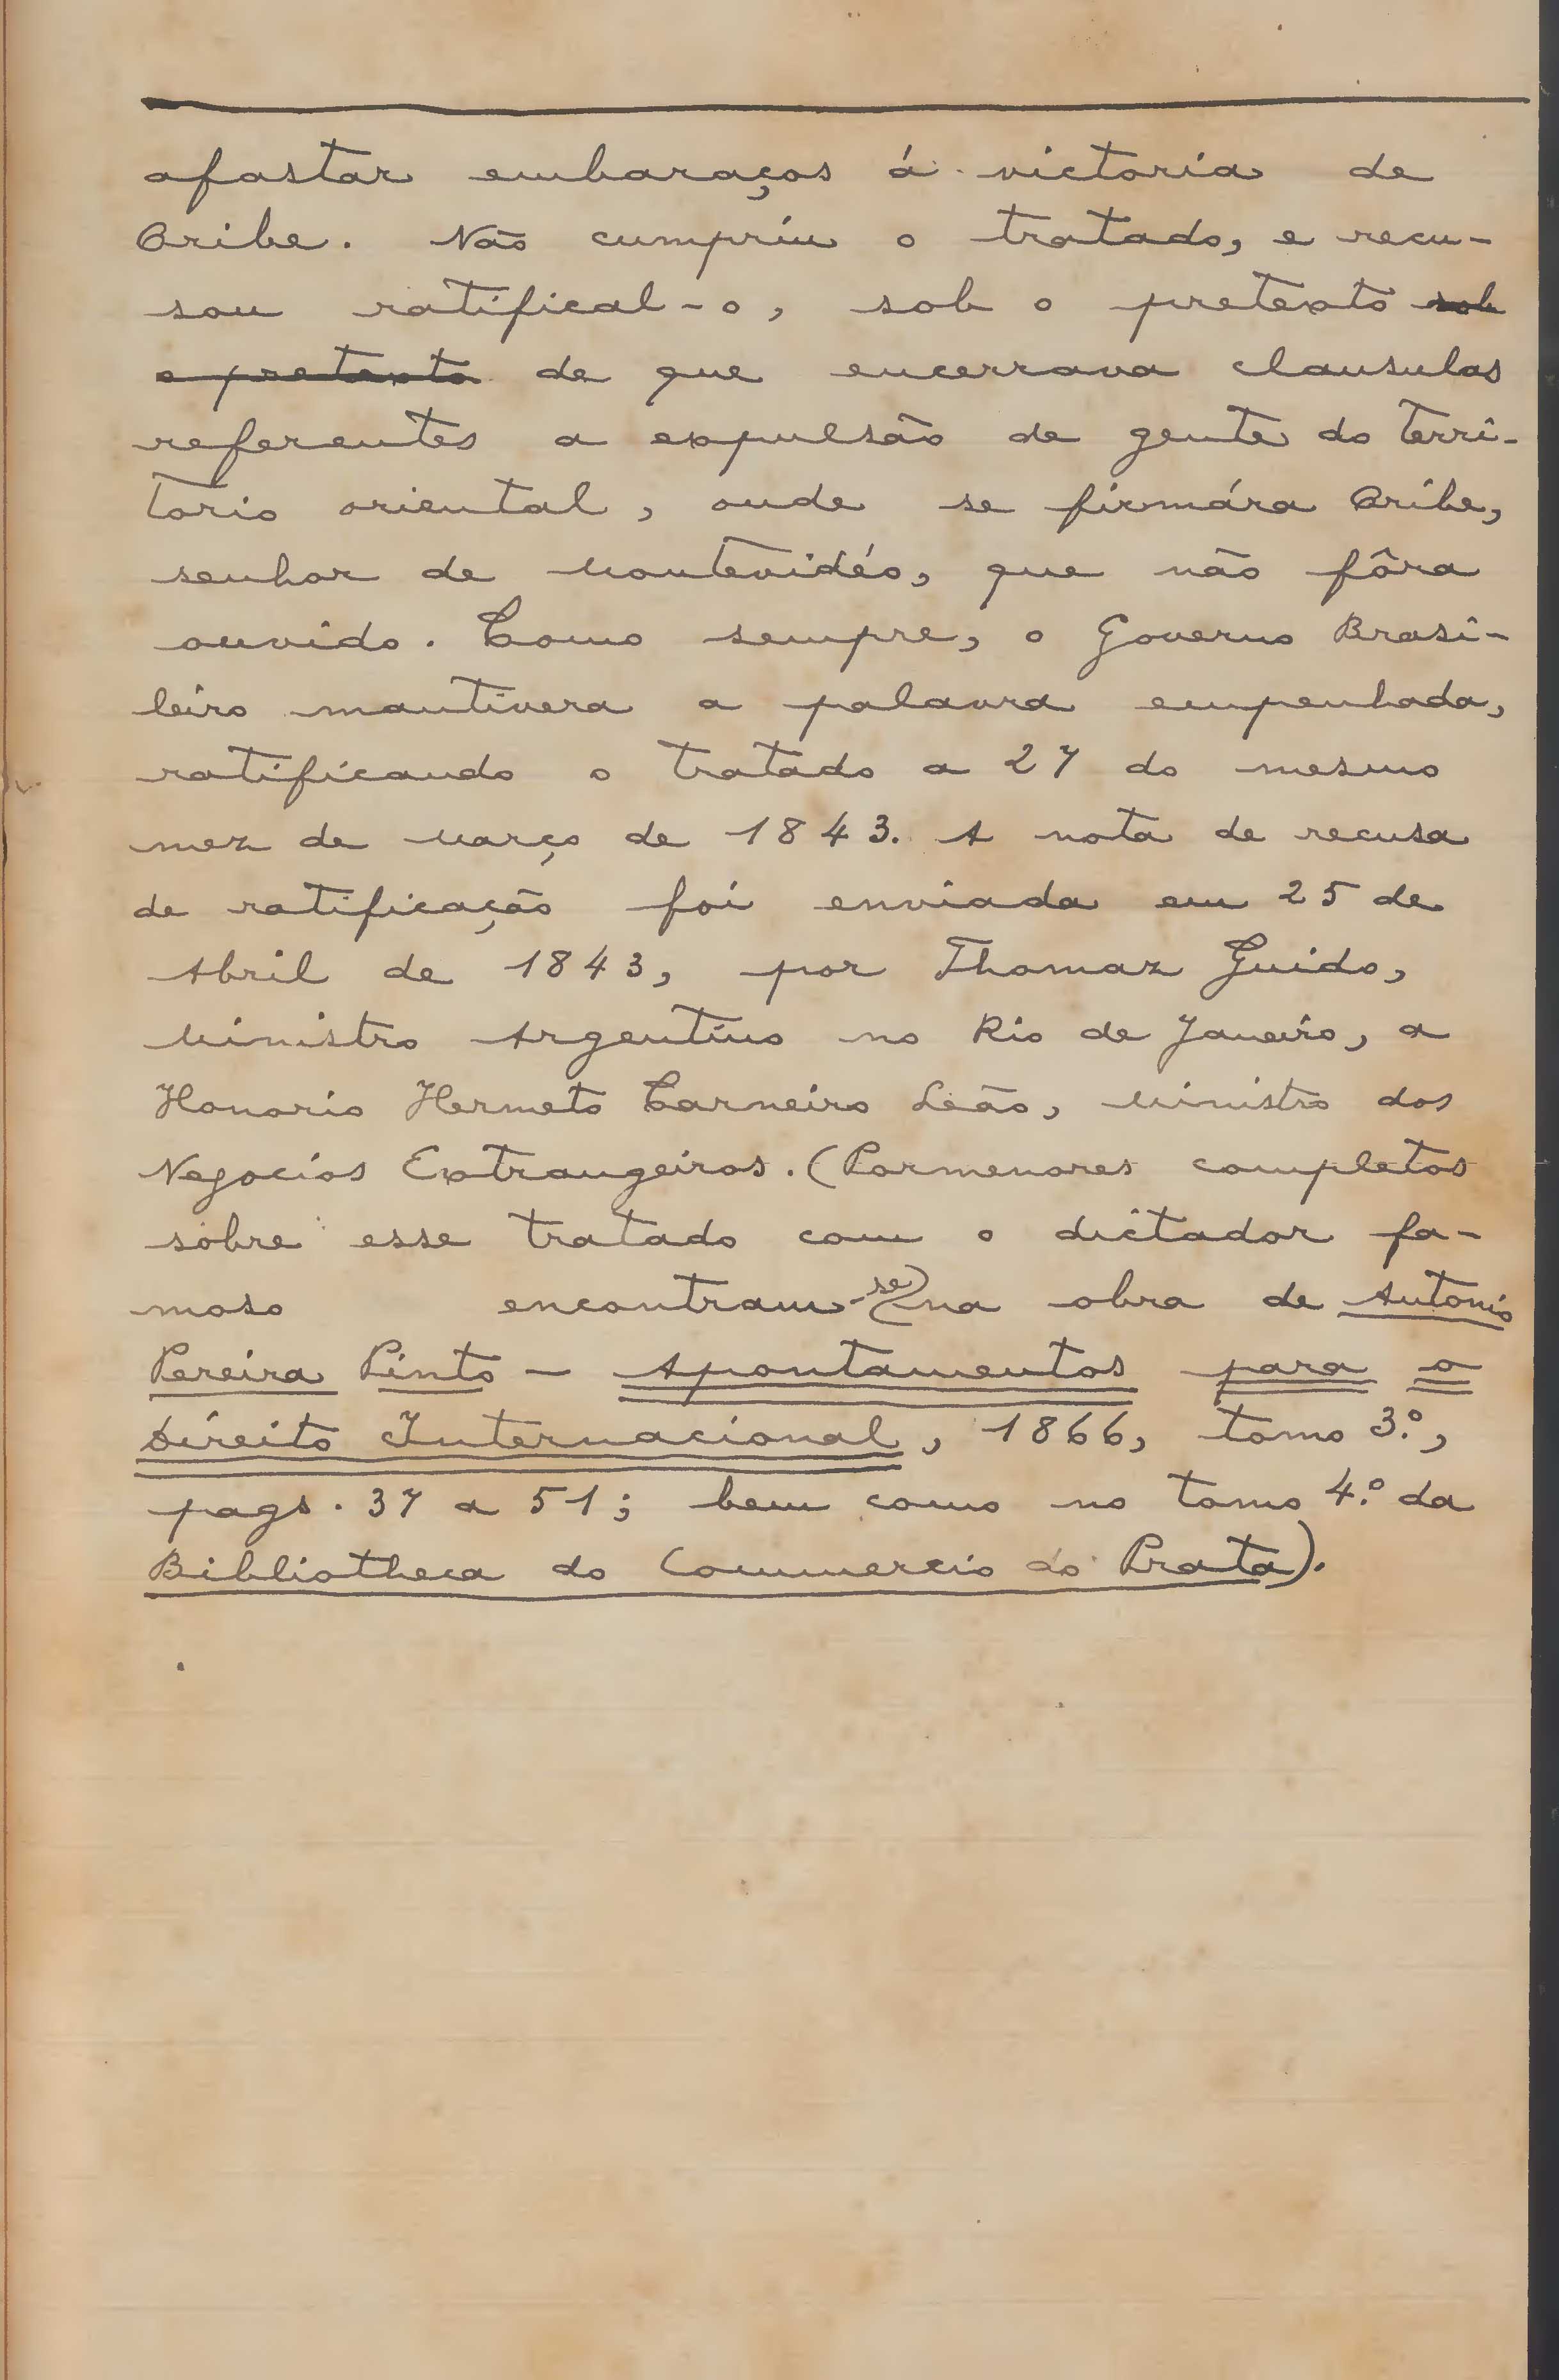 afastar embaraços á victoria de
Oribe. Não cumpriu o tratado, e recu-
sou ratifical-o, sob o pretexto sob
o pretexto de que encerrava clausulas
referentes a expulsão de gente do terri-
torio oriental, onde se firmára Oribe,
senhor de Montevidéo, que não fôra
ouvido. Como sempre, o Governo Brasi-
leiro mantivera a palavra empenhada,
ratificando o tratado a 27 do mesmo
mez de Março de 1843. A nota de recusa
de ratificação foi enviada em 25 de
Abril de 1843, por Thomaz Guido,
Ministro Argentino no Rio de Janeiro, a
Honorio Hermeto Carneiro Leão, Ministro dos
Negocios Extrangeiros. (Pormenores completos
sobre esse tratado com o dictador fa-
moso encontram-se na obra de Antonio
Pereira Pinto - Apontamentos para o
Direito Internacional, 1866, tomo 3.º,
pags. 37 a 51; bem como no tomo 4.º da
Bibliotheca do Commercio do Prata).